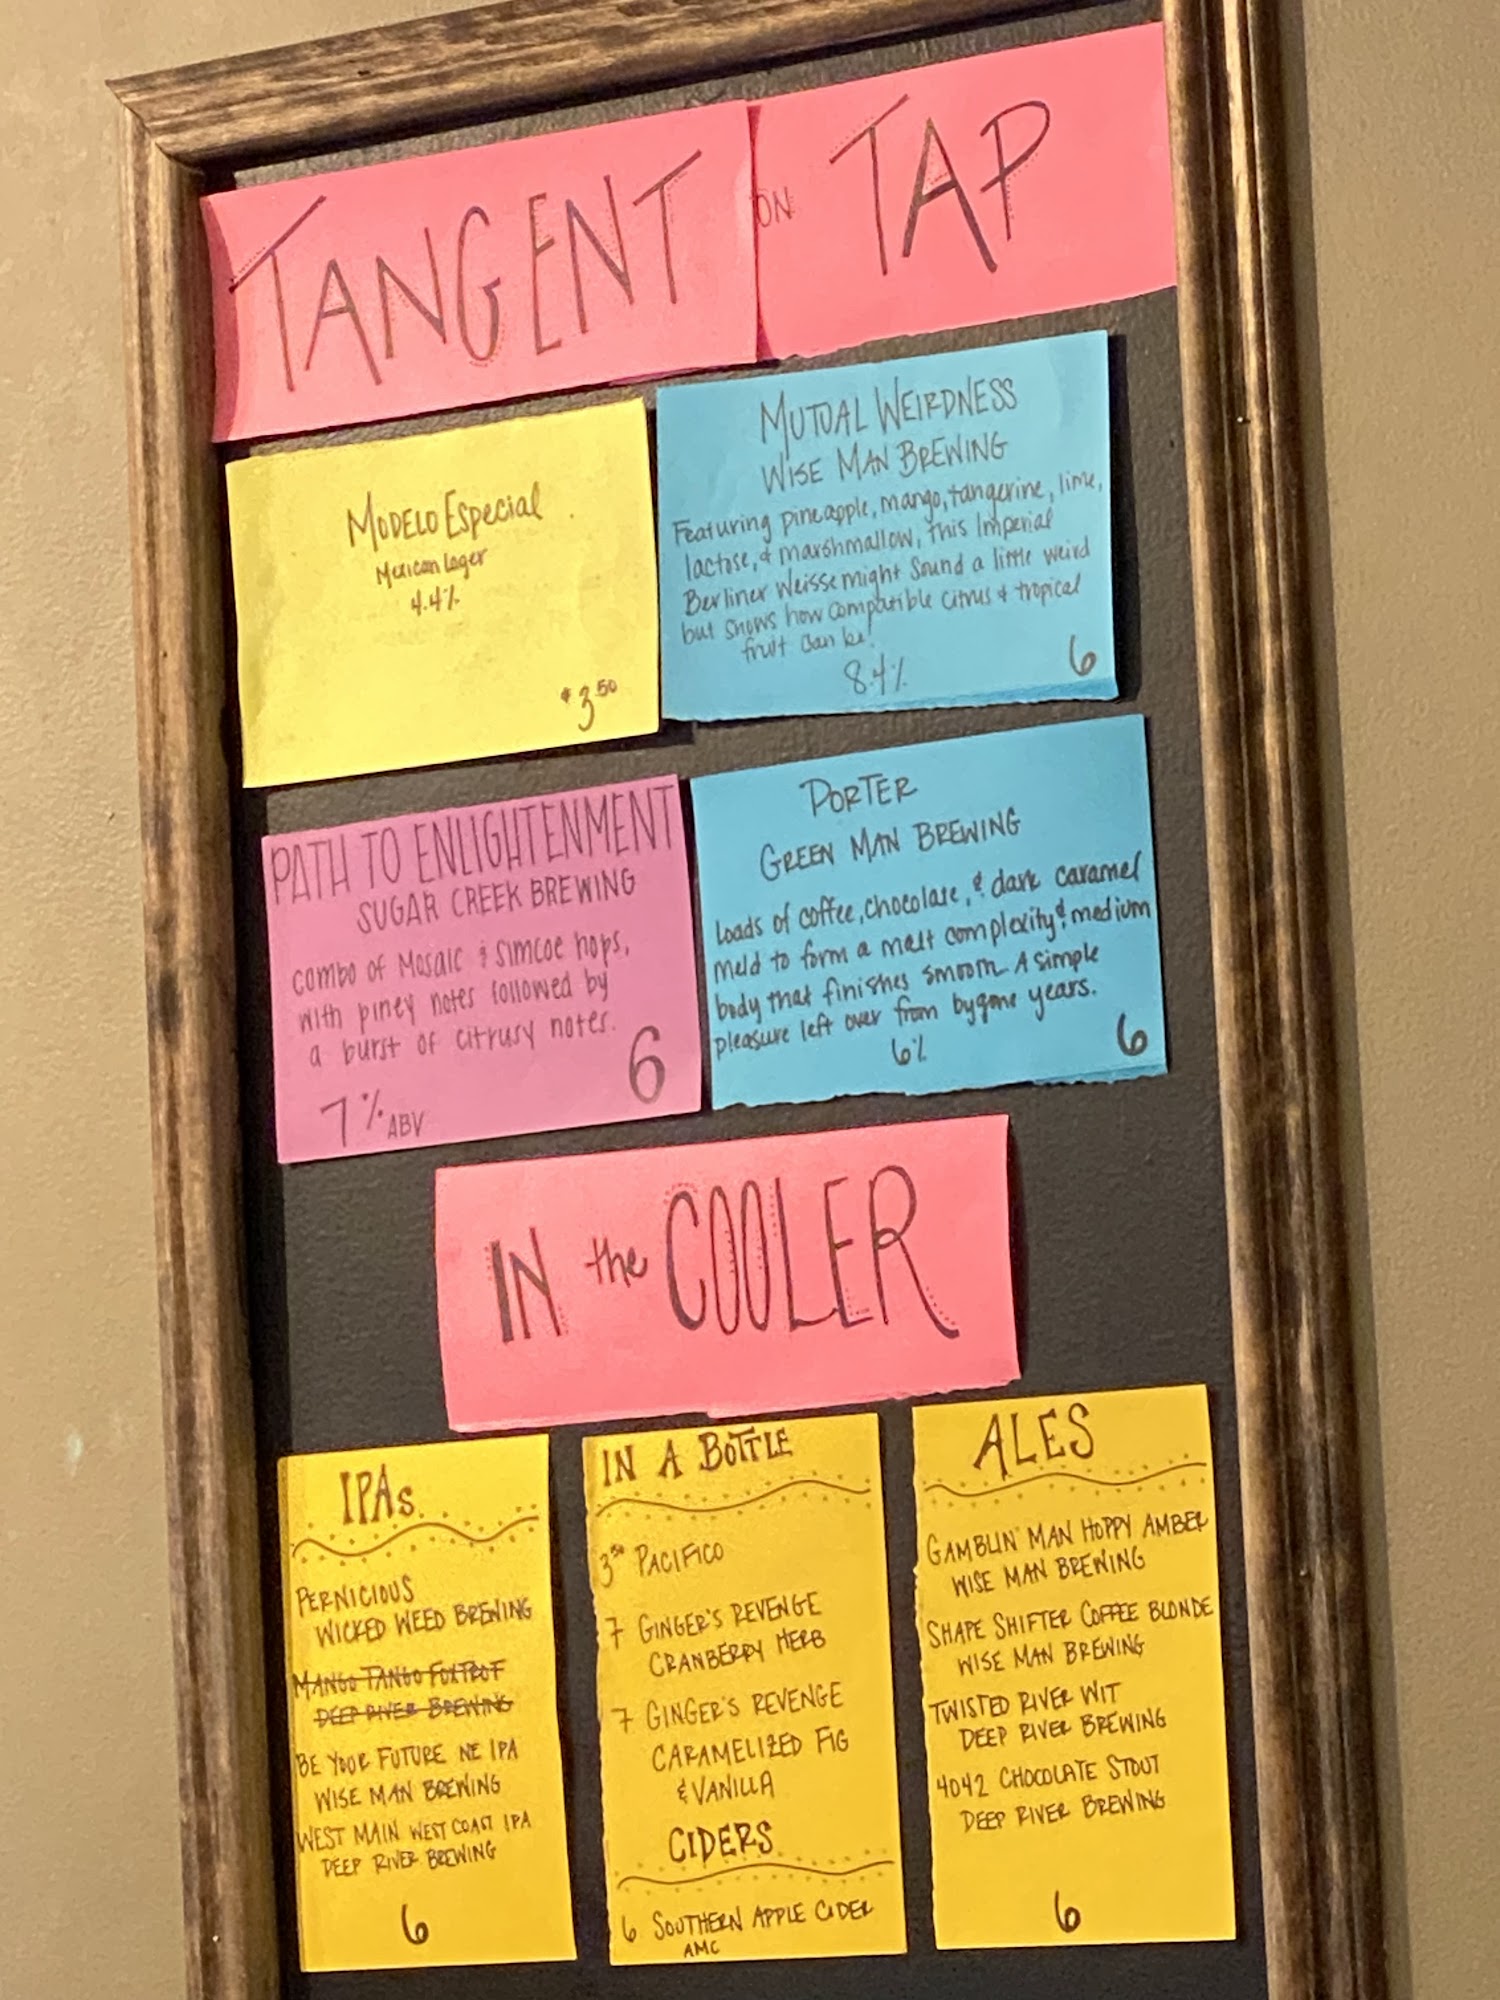 TANGENT ON TAP
MODELO ESPECIAL
Mexican Lager
4.4%
$3.50
MUTUAL WEIRDNESS
WISE MAN BREWING
Featuring pineapple, mango, tangerine, lime,
lactose, & marshmallow, this Imperial
Berliner Weisse might sound a little weird
but shows how compatible citrus & tropical
fruit can be!
8.4%
6
PATH TO ENLIGHTENMENT
SUGAR CREEK BREWING
combo of Mosaic & Simcoe hops,
with piney notes followed by
a burst of citrusy notes.
6
7% ABV
PORTER
GREEN MAN BREWING
Loads of coffee, chocolate, & dark caramel
meld to form a malt complexity & medium
body that finishes smooth. A simple
pleasure left over from bygone years.
6%
6
IN the COOLER
IPAs
PERNICIOUS
WICKED WEED BREWING
MANGO TANGO FOXTROT
DEEP RIVER BREWING
BE YOUR FUTURE NE IPA
WISE MAN BREWING
WEST MAIN WEST COAST IPA
DEEP RIVER BREWING
6
IN A BOTTLE
3.50 PACIFICO
7 GINGER'S REVENGE
CRANBERRY HERB
7 GINGER'S REVENGE
CARAMELIZED FIG
& VANILLA
CIDERS
6 SOUTHERN APPLE CIDER
AMC
ALES
GAMBLIN' MAN HOPPY AMBER
WISE MAN BREWING
SHAPE SHIFTER COFFEE BLONDE
WISE MAN BREWING
TWISTED RIVER WIT
DEEP RIVER BREWING
4042 CHOCOLATE STOUT
DEEP RIVER BREWING
6